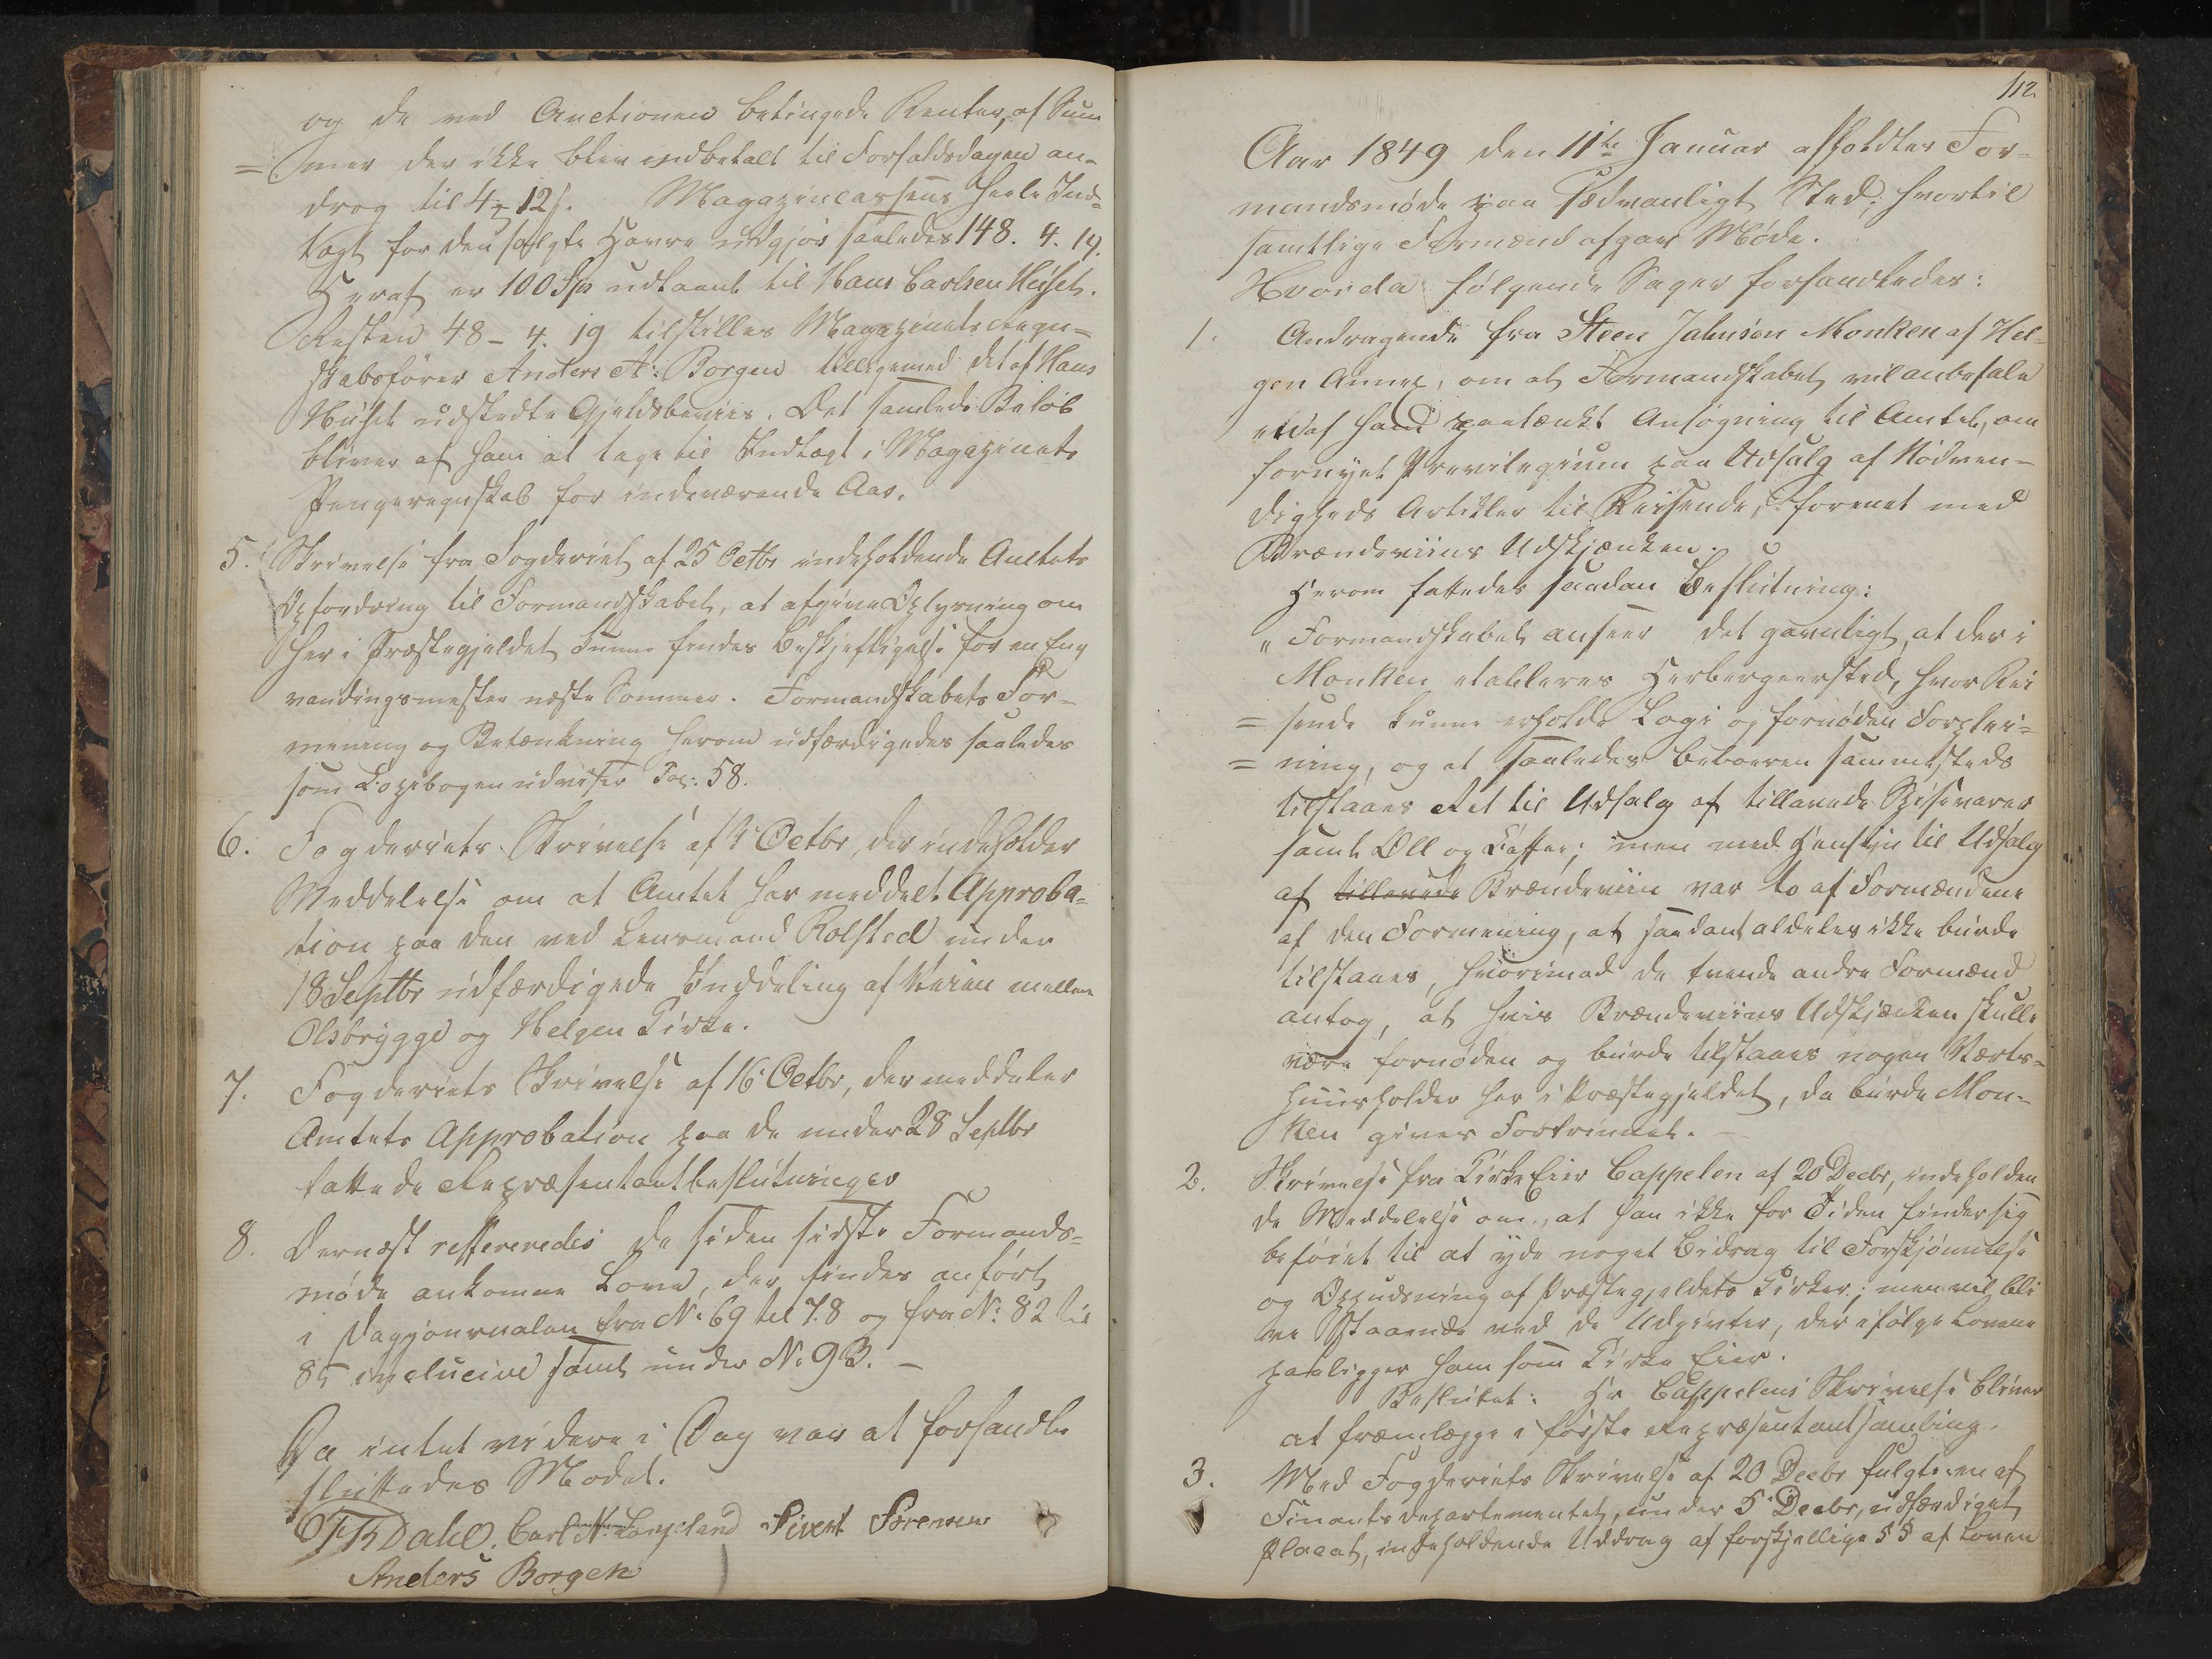 og de ved Auctionen betingede Renter, af Sum
= mer der ikke blev indbetalt til Forfaldsdagen an-
drog til 4 # 12 s. Magazincassens heele Ind-
tægt for den solgte Havre udgjør saaledes 148. 4. 19.
Heraf er 100 Spd udlaant til Hans Carlsen Huset.
Resten 48 - 4. 19 tilstilles Magazinets Regn-
skabsfører Anders A: Borgen tilligemed det af Hans
Huset udstedte Gjeldsbeviis. Det samlede Beløb
bliver af ham at tage til Indtægt i Magazinets
Pengeregnskab for indeværende Aar.
5. Skrivelse fra Fogderiet af 25 Octbr indeholdende Amtets
Opfordring til Formandskabet, at afgive Oplysning om
her i Præstegjeldet kunne findes Beskjeftigelse for en Eng
vandingsmester næste Sommer. Formandskabets For-
mening og Betænkning herom udfærdigedes saaledes
som Kopibogen udviser Pag: 58.
6. Fogderiets Skrivelse af 4 Octbr, der indeholder
Meddelelse om at Amtet har meddelt Approba-
tion paa den ved Lensmand Rolsted under
18 Septbr udfærdigede Inddeling af Veien mellem
Olsbrygge og Helgen Kirke.
7. Fogderiets Skrivelse af 16 Octbr, der meddeler
Amtets Approbation paa de under 28 Septbr
fattede Repræsentantbeslutninger
8. Dernæst reffereredes de siden sidste Formands-
møde ankomne Love, der findes anført
i Dagjournalen fra No 69 til 78 og fra No: 82 til
85 inclucive samt under No 93. -
Da intet videre i Dag var at forhandle
sluttedes Mødet.
Dahl. Carl N. Langeland Sivert Sørensen
Anders Borgen
112
Aar 1849 den 11te Januar afholdtes For-
mandsmøde paa sædvanligt Sted; hvortil
samtlige Formænd afgav Møde.
Hvorda følgende Sager forhandledes:
1. Andragende fra Steen Jahnsen Monken af Hel-
gen Annex, om at Formandskabet vil anbefale
et af ham paatænkt Ansøgning til Amtet, om
fornyet Previlegium paa Udsalg af Nødven-
digheds Artikler til Reisende, forenet med
Brændeviins Udskjænken.
Herom fattedes saadan Beslutning:
" Formandskabet anseer det gavnligt, at der i
Monken etableres Herbergeersted, hvor Rei
= sende kunne erholde Logi og fornøden Forplei-
= ning, og at saaledes Beboeren sammesteds
tilstaaes Ret til Udsalg af tillavede Spisevarer
samt Øll og Kaffee; men med Hensyn til Udsalg
af tillavede Brændeviin var to af Formændene
af den Formening, at saadant aldeles ikke burde
tilstaaes, hvorimod de tvende andre Formænd
antog, at hvis Brændeviins Udskjænken skulle
være fornøden og burde tilstaaes nogen Værts-
huusholder her i Præstegjeldet, da burde Mon-
ken gives Fortrinnet. -
2. Skrivelse fra Kirke Eier Cappelen af 20 Decbr, indeholden
de Meddelelse om, at han ikke for Tiden finder sig
beføiet til at yde noget Bidrag til Forskjønnelse
og Oppudsning af Præstegjeldets Kirker; men vil bli
ve staaende ved de Udgivter, der ifølge Lovene
paaligger ham som Kirke Eier.
Besluttet: Hr Cappelens Skrivelse bliver
at fremlægge i første Repræsentantsamling.
3. Med Fogderiets Skrivelse af 20 Decbr fulgte en af
Finantsdepartementet, under 5 Decbr, udfærdiget
Placat, indeholdende Uddrag af forskjellige § § af Loven